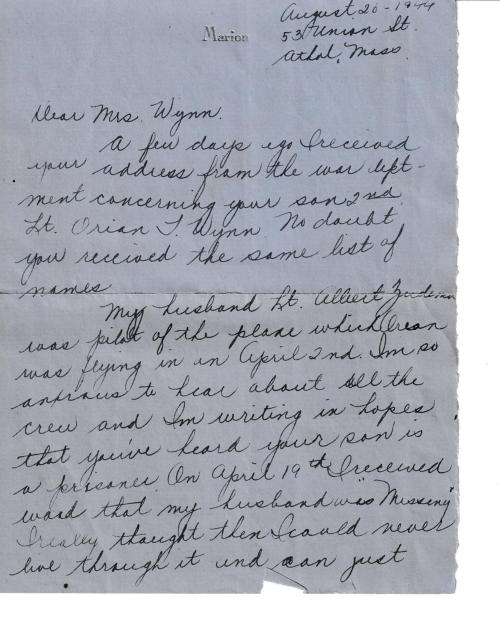 August 20-1944
Marion
53 Union St.
Athol, Mass.
Dear Mrs. Wynn.
A few days ago I received
your address from the war dept-
ment concerning your son 2nd
Lt. Orian T. Wynn. No doubt
you received the same list of
names
My husband Lt. Albert
was pilot of the plane which Orean
was flying in on April 2nd. Im so
anxious to hear about all the
crew and Im writing in hopes
that you've heard your son is
a prisoner. On April 19th I received
word that my husband was "Missing"
I really thought then I could never
live through it and can just